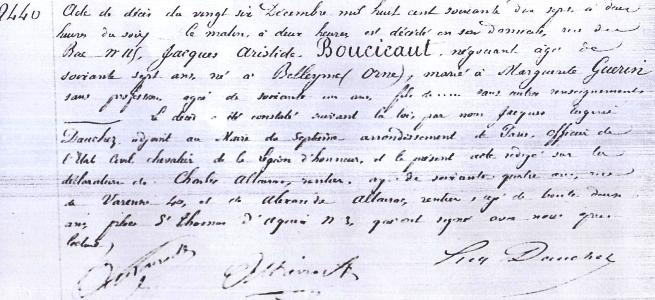 2440 Acte de décès du vingt six Décembre mil huit cent soixante dix sept à deux
heures du soir, le matin, à deux heures est décédé en son domicile, rue du
Bac nº 115, Jacques Aristide Boucicaut négociant âgé de
soixante sept ans, né à Belleyme (Orne), marié à Marguerite Guerin
sans profession, agée de soixante un ans, fils de sans autres renseignements
Le décès a été constaté suivant la loi, par nous Jacques Eugène
Dauchez adjoint au Maire du Septième arrondissement de Paris, officier de
l'Etat Civil, chevalier de la Légion d'honneur, et le présent acte rédigé sur la
déclaration de Charles rentier, agé de soixante quatre ans, rue
de Varenne 40, et de Alexandre rentier, agé de trente deux
ans, place St Thomas d'Aquin nº 3, qui ont signé avec nous après
lecture,
Dauchez